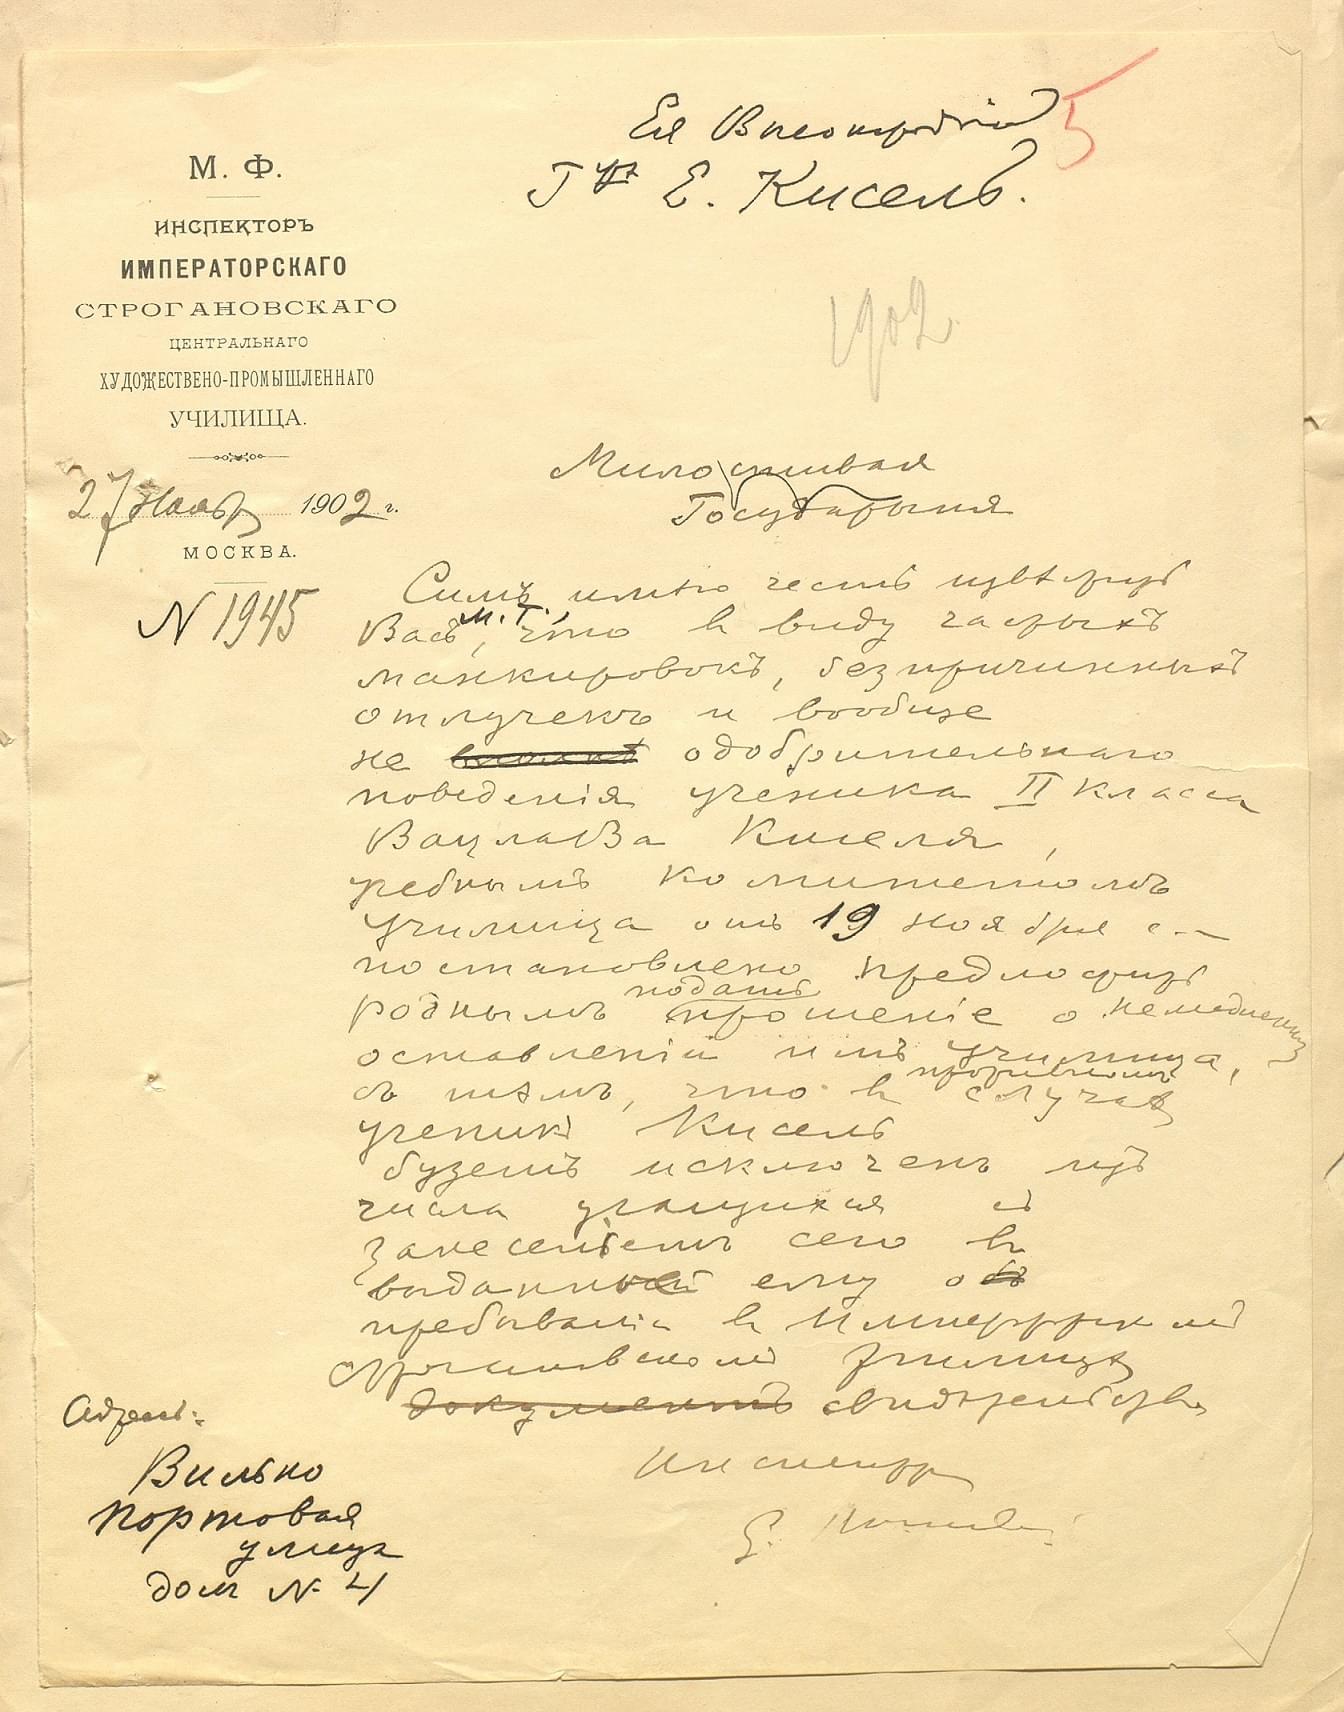 Ея Высокородію
5
Г^жѣ Е. Кисель.
М. Ф.
ИНСПЕКТОРЪ
ИМПЕРАТОРСКАГО
СТРОГАНОВСКАГО
ЦЕНТРАЛЬНАГО
ХУДОЖЕСТВЕНО-ПРОМЫШЛЕННАГО
УЧИЛИЩА.
27 Ноября 1902 г.
МОСКВА.
N 1945
1902
Милостивая
Государыня
Симъ имѣю честь извѣстить
Васъ, М. Г., что въ виду частыхъ
манкировокъ, безпричинныхъ
отлучекъ и вообще
не вполнѣ одобрительнаго
поведенія ученика II класса
Вацлава Киселя,
учебнымъ комитетомъ
училища отъ 19 ноября с.
постановлено предложить
роднымъ подать прошеніе о немедленномъ
оставленіи имъ училища,
съ тѣмъ, что въ противномъ случаѣ
ученикъ Кисель
будетъ исключенъ изъ
числа учащихся съ
занесеніемъ сего въ
выданный ему о
пребываніи въ Императорскомъ
Строгановскомъ училищѣ
документъ свидѣтельство
Инспекторъ
Адресъ:
Вильно
Портовая
улица
домъ № 4